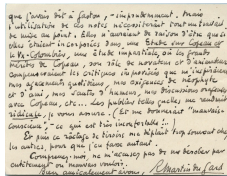 que j'avais dit à Gaston, - imprudemment, - mais
l'utilisation de ces notes nécessiterait tout un travail
de mise au point. Elles n'auraient de raison d'être que si
elles étaient incorporées dans une Étude sur Copeau et
le Vx-Colombier, une étude impartiale, où les grands
mérites de Copeau, son rôle de novateur et d'animateur
compenseraient les critiques
nos agacements quotidiens, nos
et d'ami, nos sautes d'humeur, nos discussions
avec Copeau, etc... Les publier telles quelles me rendrait
ridicule, je vous assure. (Et me donnerait "mauvaise
conscience", ce qui est très inconfortable!..)
Et si ce ridicule là me déplaît trop souvent chez
les autres, pour que j'en fasse autant.
Comprenez-moi, ne m'accusez pas de me dérober par
entêtement ou mauvais vouloir,
Bien amicalement à vous,
R. Martin du Gard